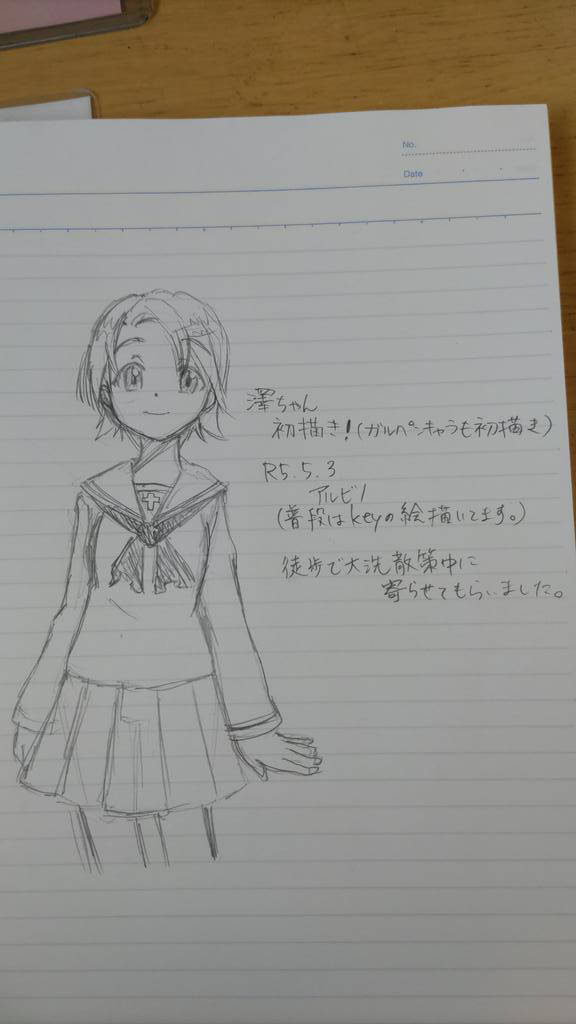 No.
Date
澤ちゃん
初描き!(ガルパンキャラも初描き)
R5.5.3
アルビノ
(普段はkeyの絵描いてます。)
徒歩で大洗散策中に
寄らせてもらいました。